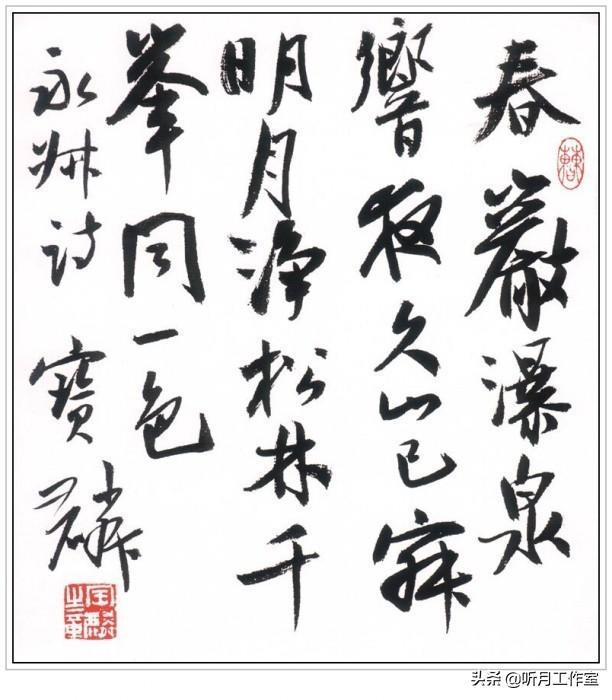 春巖瀑泉
響夜久山已寂
明月淨松林千
峯同一色
永叔诗 寶
头条 @听月工作室